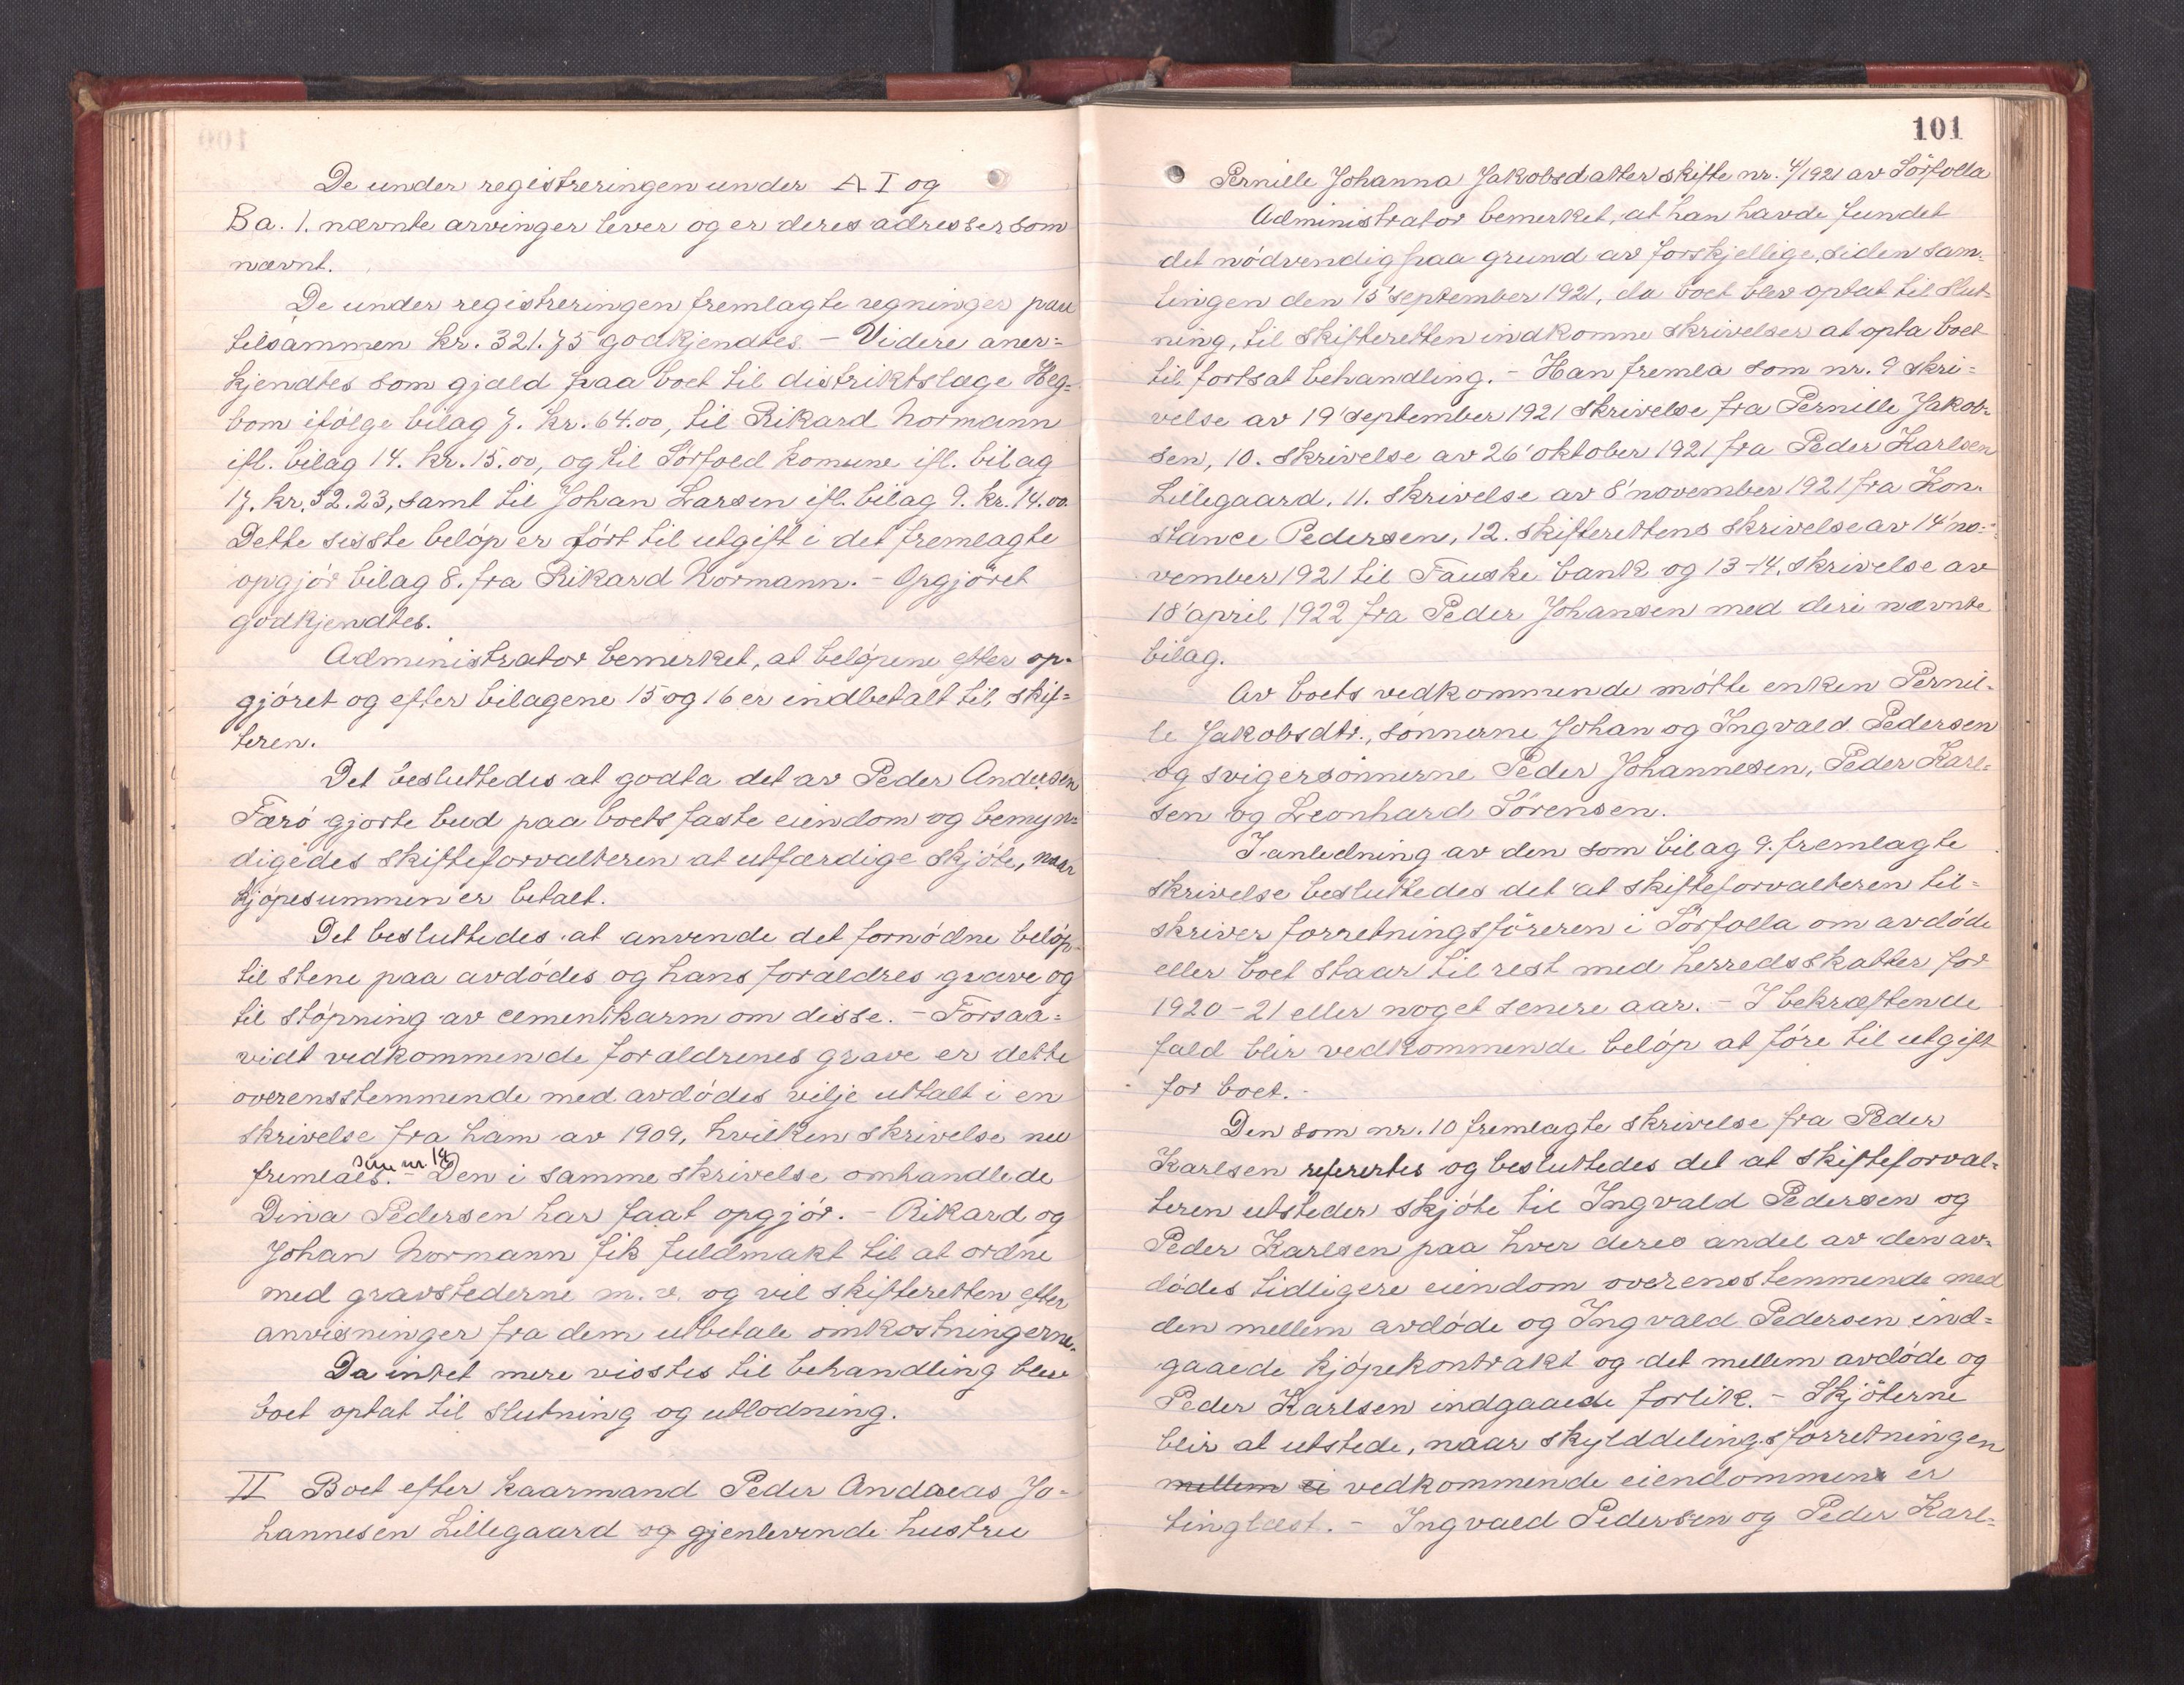 De under registreringen under A I og
Ba. 1. nævnte arvinger lever og er deres adresser som
nævnt.
De under registreringen fremlagte regninger paa
tilsammen kr. 321.75 godkjendtes. - Videre aner=
kjendtes som gjæld paa boet til distriktslæge Heg=
bom ifölge bilag 7. kr. 64.00, til Rikard Normann
ifl. bilag 14. kr. 15.00, og til Sörfold komune ifl. bilag
17. kr. 52.23, samt til Johan Larsen ifl. bilag 9. kr. 14.00.
Dette sisste belöp er fört til utgift i det fremlagte
opgjör bilag 8. fra Rikard Normann. - Opgjöret
godkjendtes.
Administrator bemerket, at belöpene efter op-
gjöret og efter bilagene 15 og 16 er indbetalt til skif=
teren.
Det besluttedes at godta det av Peder Andersen
Færö gjorte bud paa boets faste eiendom og bemyn=
digedes skifteforvalteren at utfærdige skjöte, naar
kjöpesummen er betalt.
Det besluttedes at anvende det fornödne belöp
til stene paa avdödes og hans forældres grave og
til stöpning av cementkarm om disse. - Forsaa=
vidt vedkommende forældrenes grave er dette
overensstemmende med avdödes vilje uttalt i en
skrivelse fra ham av 1909, hvilken skrivelse nu
som nr. 18
fremlaes. - Den i samme skrivelse omhandlede
Dina Pedersen har faat opgjör. - Rikard og
Johan Normann fik fuldmakt til at ordne
med gravstederne m.v. og vil skifteretten efter
anvisninger fra dem utbetale omkostningerne.
Da intet mere visstes til behandling blev
boet optat til slutning og utlodning.
II Boet efter kaarmand Peder Andreas Jo-
hannesen Lillegaard og gjenlevende hustru
101
Pernille Johanna Jakobsdatter skifte nr. 4/1921 av Sörfolla
Administrator bemerket, at han havde fundet
det nödvendig paa grund av forskjellige, siden sam-
lingen den 15' september 1921, da boet blev optat til slut-
ning, til skifteretten indkomne skrivelser at opta boet
til fortsat behandling. - Han fremla som nr. 9 skri=
velse av 19' september 1921 skrivelse fra Pernille Jakob-
sen, 10. skrivelse av 26' oktober 1921 fra Peder Karlsen
Lillegaard, 11. skrivelse av 8' november 1921 fra Kon-
stance Pedersen, 12. skifterettens skrivelse av 14' no-
vember 1921 til Fauske bank og 13-14. skrivelse av
18' april 1922 fra Peder Johansen med deri nævnte
bilag.
Av boets vedkommende mötte enken Pernil-
le Jakobsdtr., sönnerne Johan og Ingvald Pedersen
og svigersönnerne Peder Johannesen, Peder Karl=
sen og Leonhard Sörensen.
I anledning av den som bilag 9. fremlagte
skrivelse besluttedes det at skifteforvalteren til=
skriver forretningsföreren i Sörfolla om avdöde
eller boet staar til rest med herredsskatter for
1920-21 eller noget senere aar. - I bekræftende
fald blir vedkommende belöp at före til utgift
for boet.
Den som nr. 10 fremlagte skrivelse fra Peder
Karlsen refertes og besluttedes det at skifteforval=
teren utsteder skjöte til Ingvald Pedersen og
Peder Karlsen paa hver deres andel av den av-
dödes tidligere eiendom overensstemmende med
den mellem avdöde og Ingvald Pedersen ind=
gaaede kjöpekontrakt og det mellem avdöde og
Peder Karlsen indgaaede forlik. - Skjöterne
blir at utstede, naar skylddelingsforretningen
mellem ei vedkommende eiendommen er
tinglæst. - Ingvald Pedersen og Peder Karl=